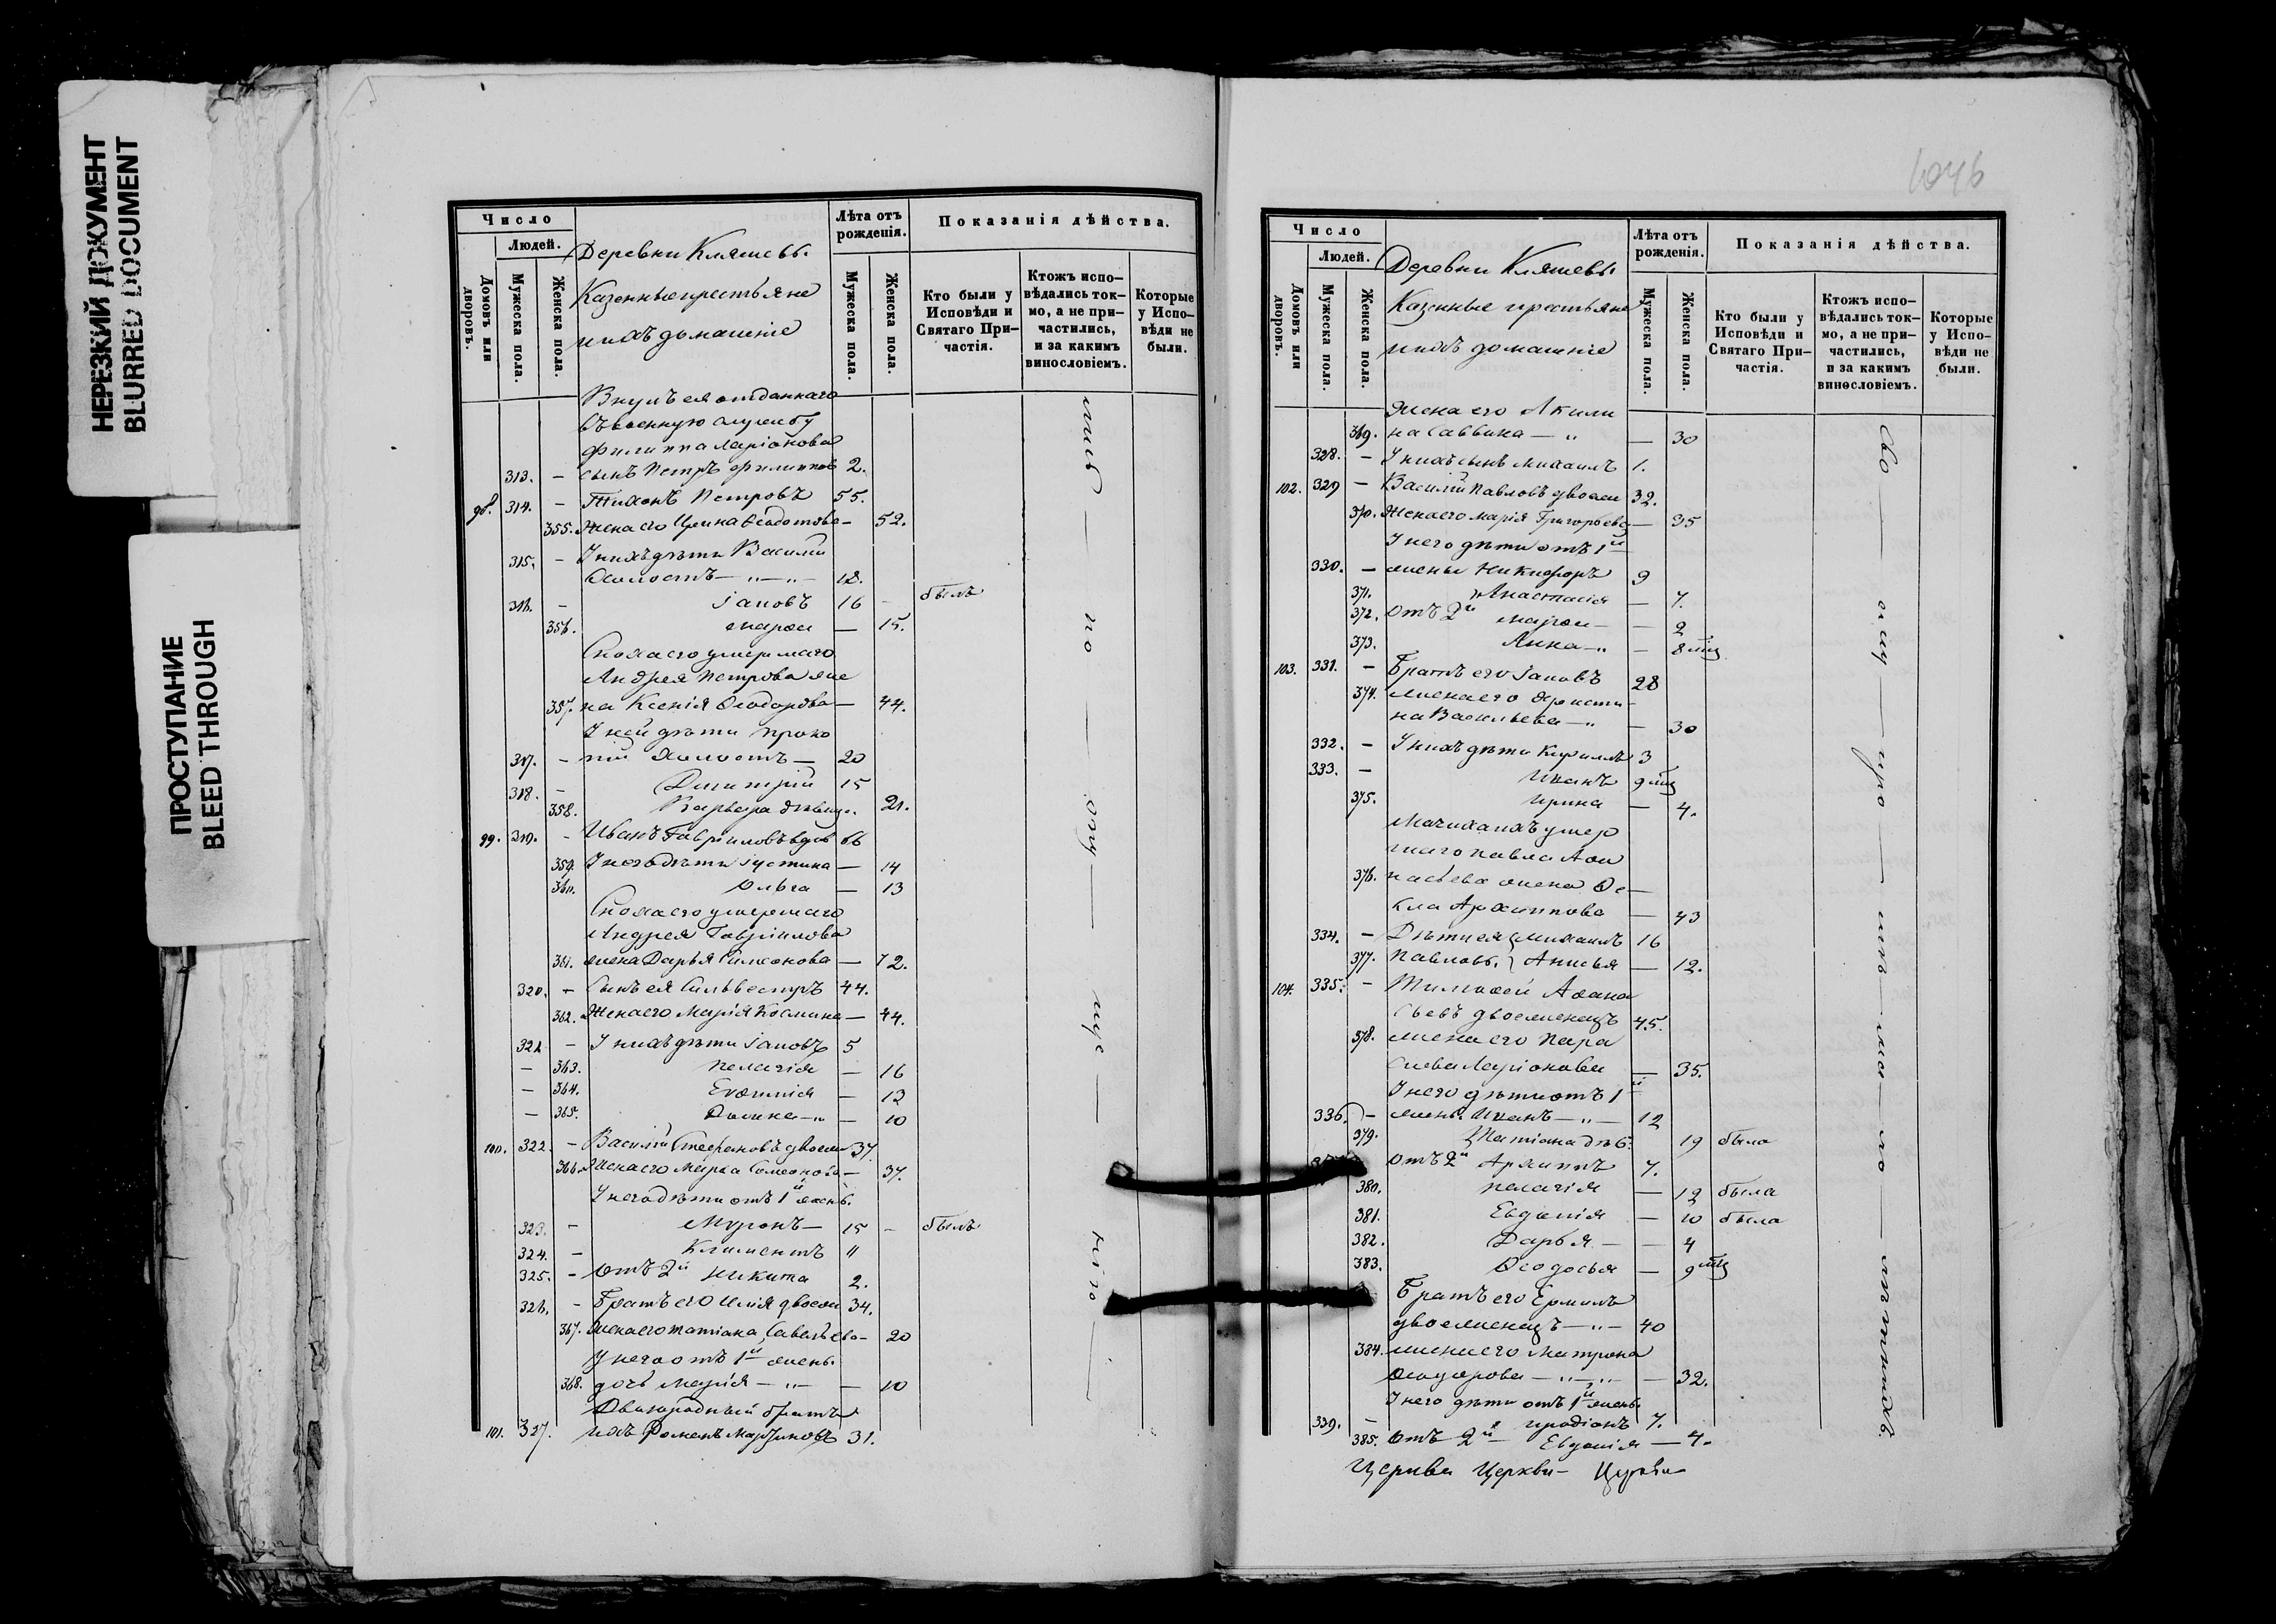 НЕРЕЗКИЙ ДОКУМЕНТ
BLURRED DOCUMENT
ПРОСТУПАНИЕ
BLEED THROUGH
Число
Людей.
Домовъ или дворовъ.
Мужеска пола.
Женска пола.
Деревни Кляшевы
Казенные крестьяне
и ихъ домашніе
Лѣта отъ рожденія.
Мужеска пола.
Женска пола.
Показанія дѣйства.
Кто были у Исповѣди и Святаго Причастія.
Ктожъ исповѣдались токмо, а не причастились, и за какимъ винословіемъ.
Которые у Исповѣди не были.
Внукъ ея отданнаго
въ военную службу
Филиппа Ларіонова
313. – сынъ Петръ Филиповъ 2.
98. 314. – Тихонъ Петровъ 55.
355. Жена его Ирина Ѳедотова – 52.
315. – У нихъ дѣти Василій
Холостъ – „ – „ – 18.
316. – Іаковъ 16 – былъ
356. Марѳа – 15.
Сноха его умершаго
Андрея Петрова же
357. на Ксенія Ѳеодорова – 44.
У ней дѣти Проко
317. – пій Холостъ – 20
318. – Димитрій 15
358. Варвара дѣвиц. 21.
99. 319. – Иванъ Гавриловъ вдов 66
359. У него дѣти Іустина – 14
360. Ольга – 13
Сноха его умершаго
Андрея Гаврилова
361. жена Дарья Симеонова – 72.
320. – Сынъ ея Сильвестръ 44.
362. Жена его Марія Козмина – 44.
321 – У нихъ дѣти Іаковъ 5
– 363. Пелагія – 16
– 364. Евѳимія – 13
– 365. Домна – „ – 10
100. 322. – Василій Стефановъ двоеж 37.
366. Жена его Марѳа Симеонова – 37.
У него дѣти отъ 1й жены.
323. – Миронъ – 15 – былъ
324. – Климентъ 11
325. – Отъ 2й Никита 2.
326. – Братъ его Илія двоеж 34.
367. Жена его Татіана Савельева – 20
У него отъ 1й жены.
368. дочь Марія – „ – – 10
Двоюродный братъ
101. 327. ихъ Романъ Мартиновъ 31.
Число
Людей.
Домовъ или дворовъ.
Мужеска пола.
Женска пола.
Деревни Кляшевы
Казенные крестьяне
и ихъ домашніе
Лѣта отъ рожденія.
Мужеска пола.
Женска пола.
Показанія дѣйства.
Кто были у Исповѣди и Святаго Причастія.
Ктожъ исповѣдались токмо, а не причастились, и за какимъ винословіемъ.
Которые у Исповѣди не были.
Жена его Акили
369. на Саввина – „ – 30
328. – У нихъ сынъ Михаилъ 1.
102. 329 – Василій Павловъ двоеж 32.
370. Жена его Марія Григорьева – 35
У него дѣти отъ 1й
330. – жены Никифоръ 9
371. Анастасія – 7.
372. Отъ 2й Марѳа – – 2
373. Анна – „ – 8 мц
103. 331. – Братъ его Іаковъ 28
374. жена его Христи
на Васильева – „ – 30
332. – У нихъ дѣти Кириллъ 3
333. – Иванъ 9 мц
375. Ирина – 4.
Мачиха ихъ умер
шаго Павла Аѳа
376. насьева жена Ѳе –
кла Архиппова – 43
334. – Дѣти ея Михаилъ 16
377. Павловы. Анисья – 12.
104. 335. – Тимоѳей Аѳана
сьевъ двоеженецъ 45.
378. жена его Пара
скева Ларіонова – 35.
У него дѣти отъ 1й
336. – жены. Иванъ – „ – 12
379. Татіана дѣв. 19 была
Отъ 2й Архипъ 7.
380. Пелагія – 12 была
381. Евдокія – 10 была
382. Дарья – – 4
383. Ѳеодосья – 9 мц
Братъ его Ермилъ
двоеженецъ – „ – 40
384. жена его Матрона
Ѳеодорова – „ – „ – 32.
У него дѣти отъ 1й жены.
339. – Иродіонъ 7.
385. Отъ 2й Евдокія – 4.
Церкви Церкви – Церкви